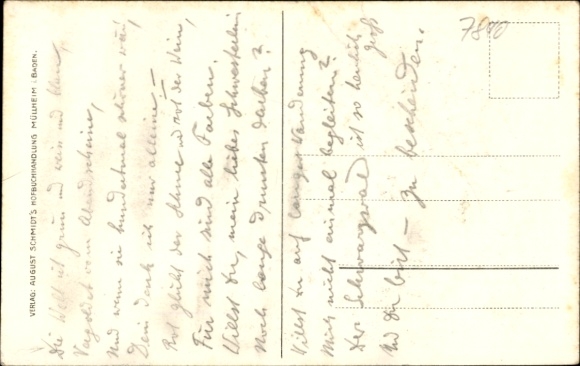 VERLAG: AUGUST SCHMIDT'S HOFBUCHHANDLUNG MÜLLHEIM I. BADEN.
7840
Die Welt ist grün und weiss und blau,
Vergoldet vom Abendscheine,
Und wenn sie hundertmal schöner wär,
Dein denk ich nur alleine —
Rot glüht der Schnee und rot der Wein,
Für mich sind alle Farben.
Willst Du, mein liebes Schwesterlein
Noch lange drunten darben?
Willst Du auf langer Wanderung
Mich nicht einmal begleiten?
Der Schwarzwald ist so herrlich gross
Und Du bist — zu bescheiden.